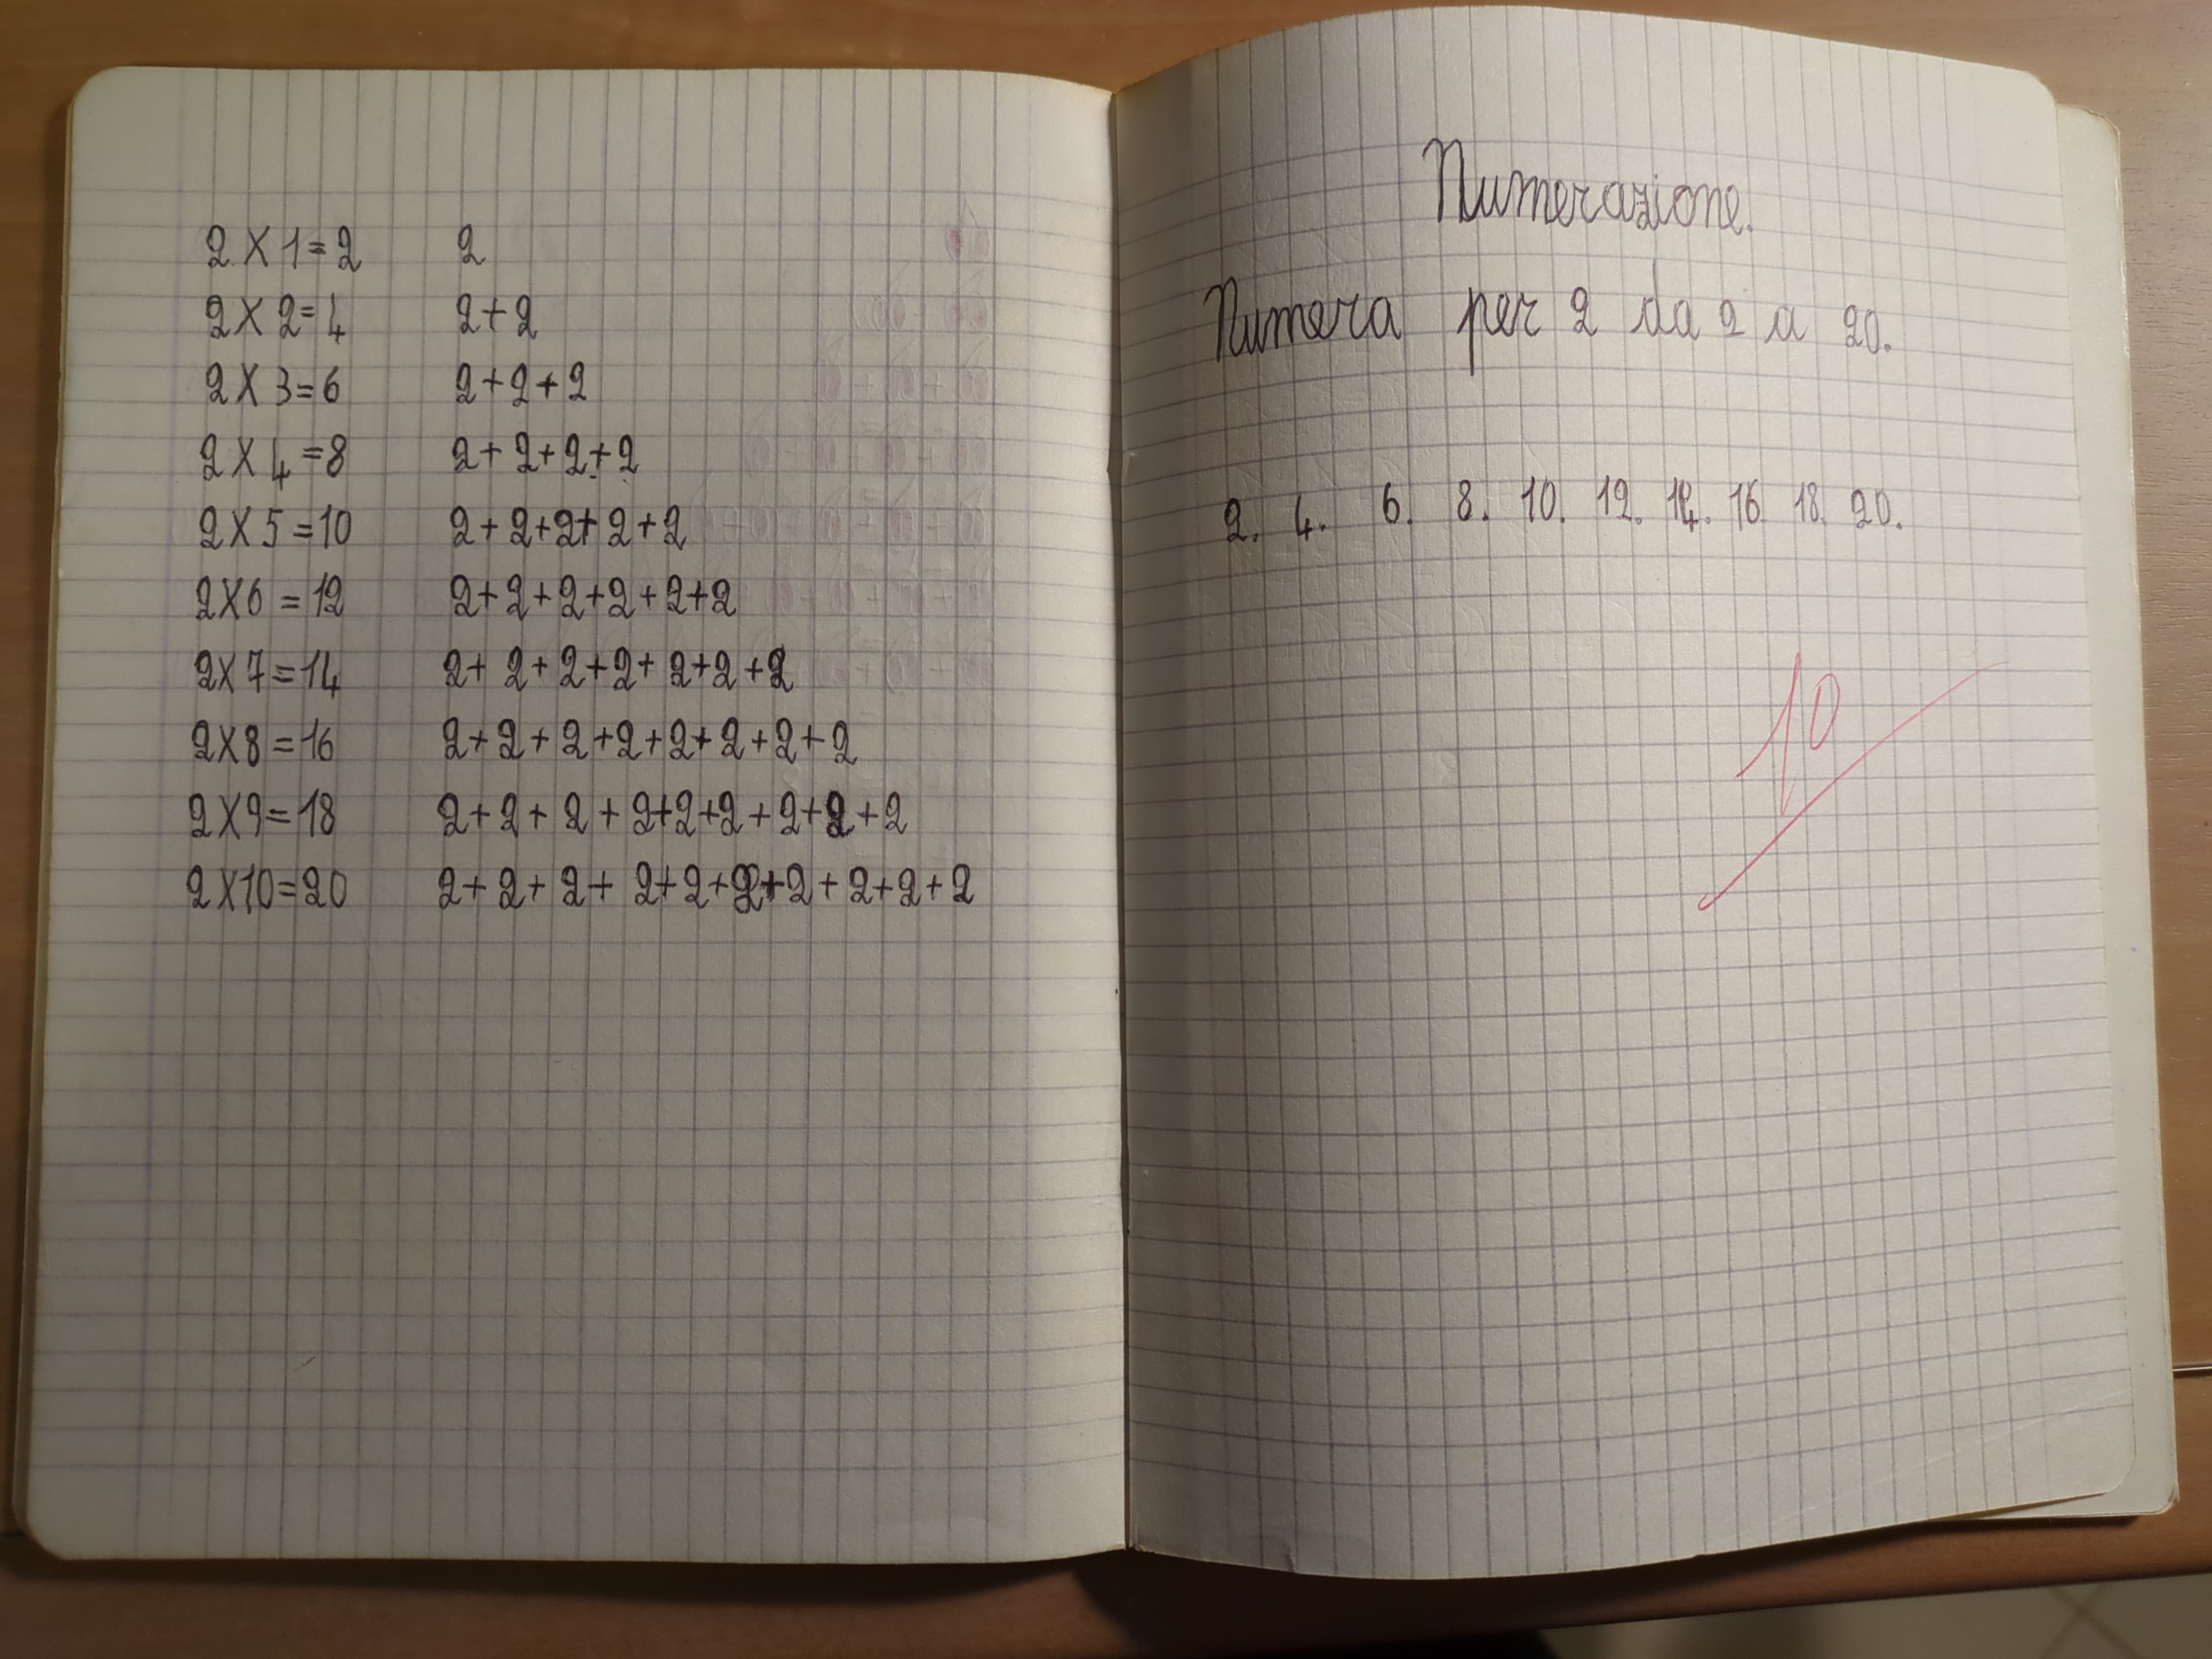 2 X 1 = 2 2
2 X 2 = 4 2 + 2
2 X 3 = 6 2 + 2 + 2
2 X 4 = 8 2 + 2 + 2 + 2
2 X 5 = 10 2 + 2 + 2 + 2 + 2
2 X 6 = 12 2 + 2 + 2 + 2 + 2 + 2
2 X 7 = 14 2 + 2 + 2 + 2 + 2 + 2 + 2
2 X 8 = 16 2 + 2 + 2 + 2 + 2 + 2 + 2 + 2
2 X 9 = 18 2 + 2 + 2 + 2 + 2 + 2 + 2 + 2 + 2
2 X 10 = 20 2 + 2 + 2 + 2 + 2 + 2 + 2 + 2 + 2 + 2
Numerazione.
Numera per 2 da 2 a 20.
2. 4. 6. 8. 10. 12. 14. 16. 18. 20.
10